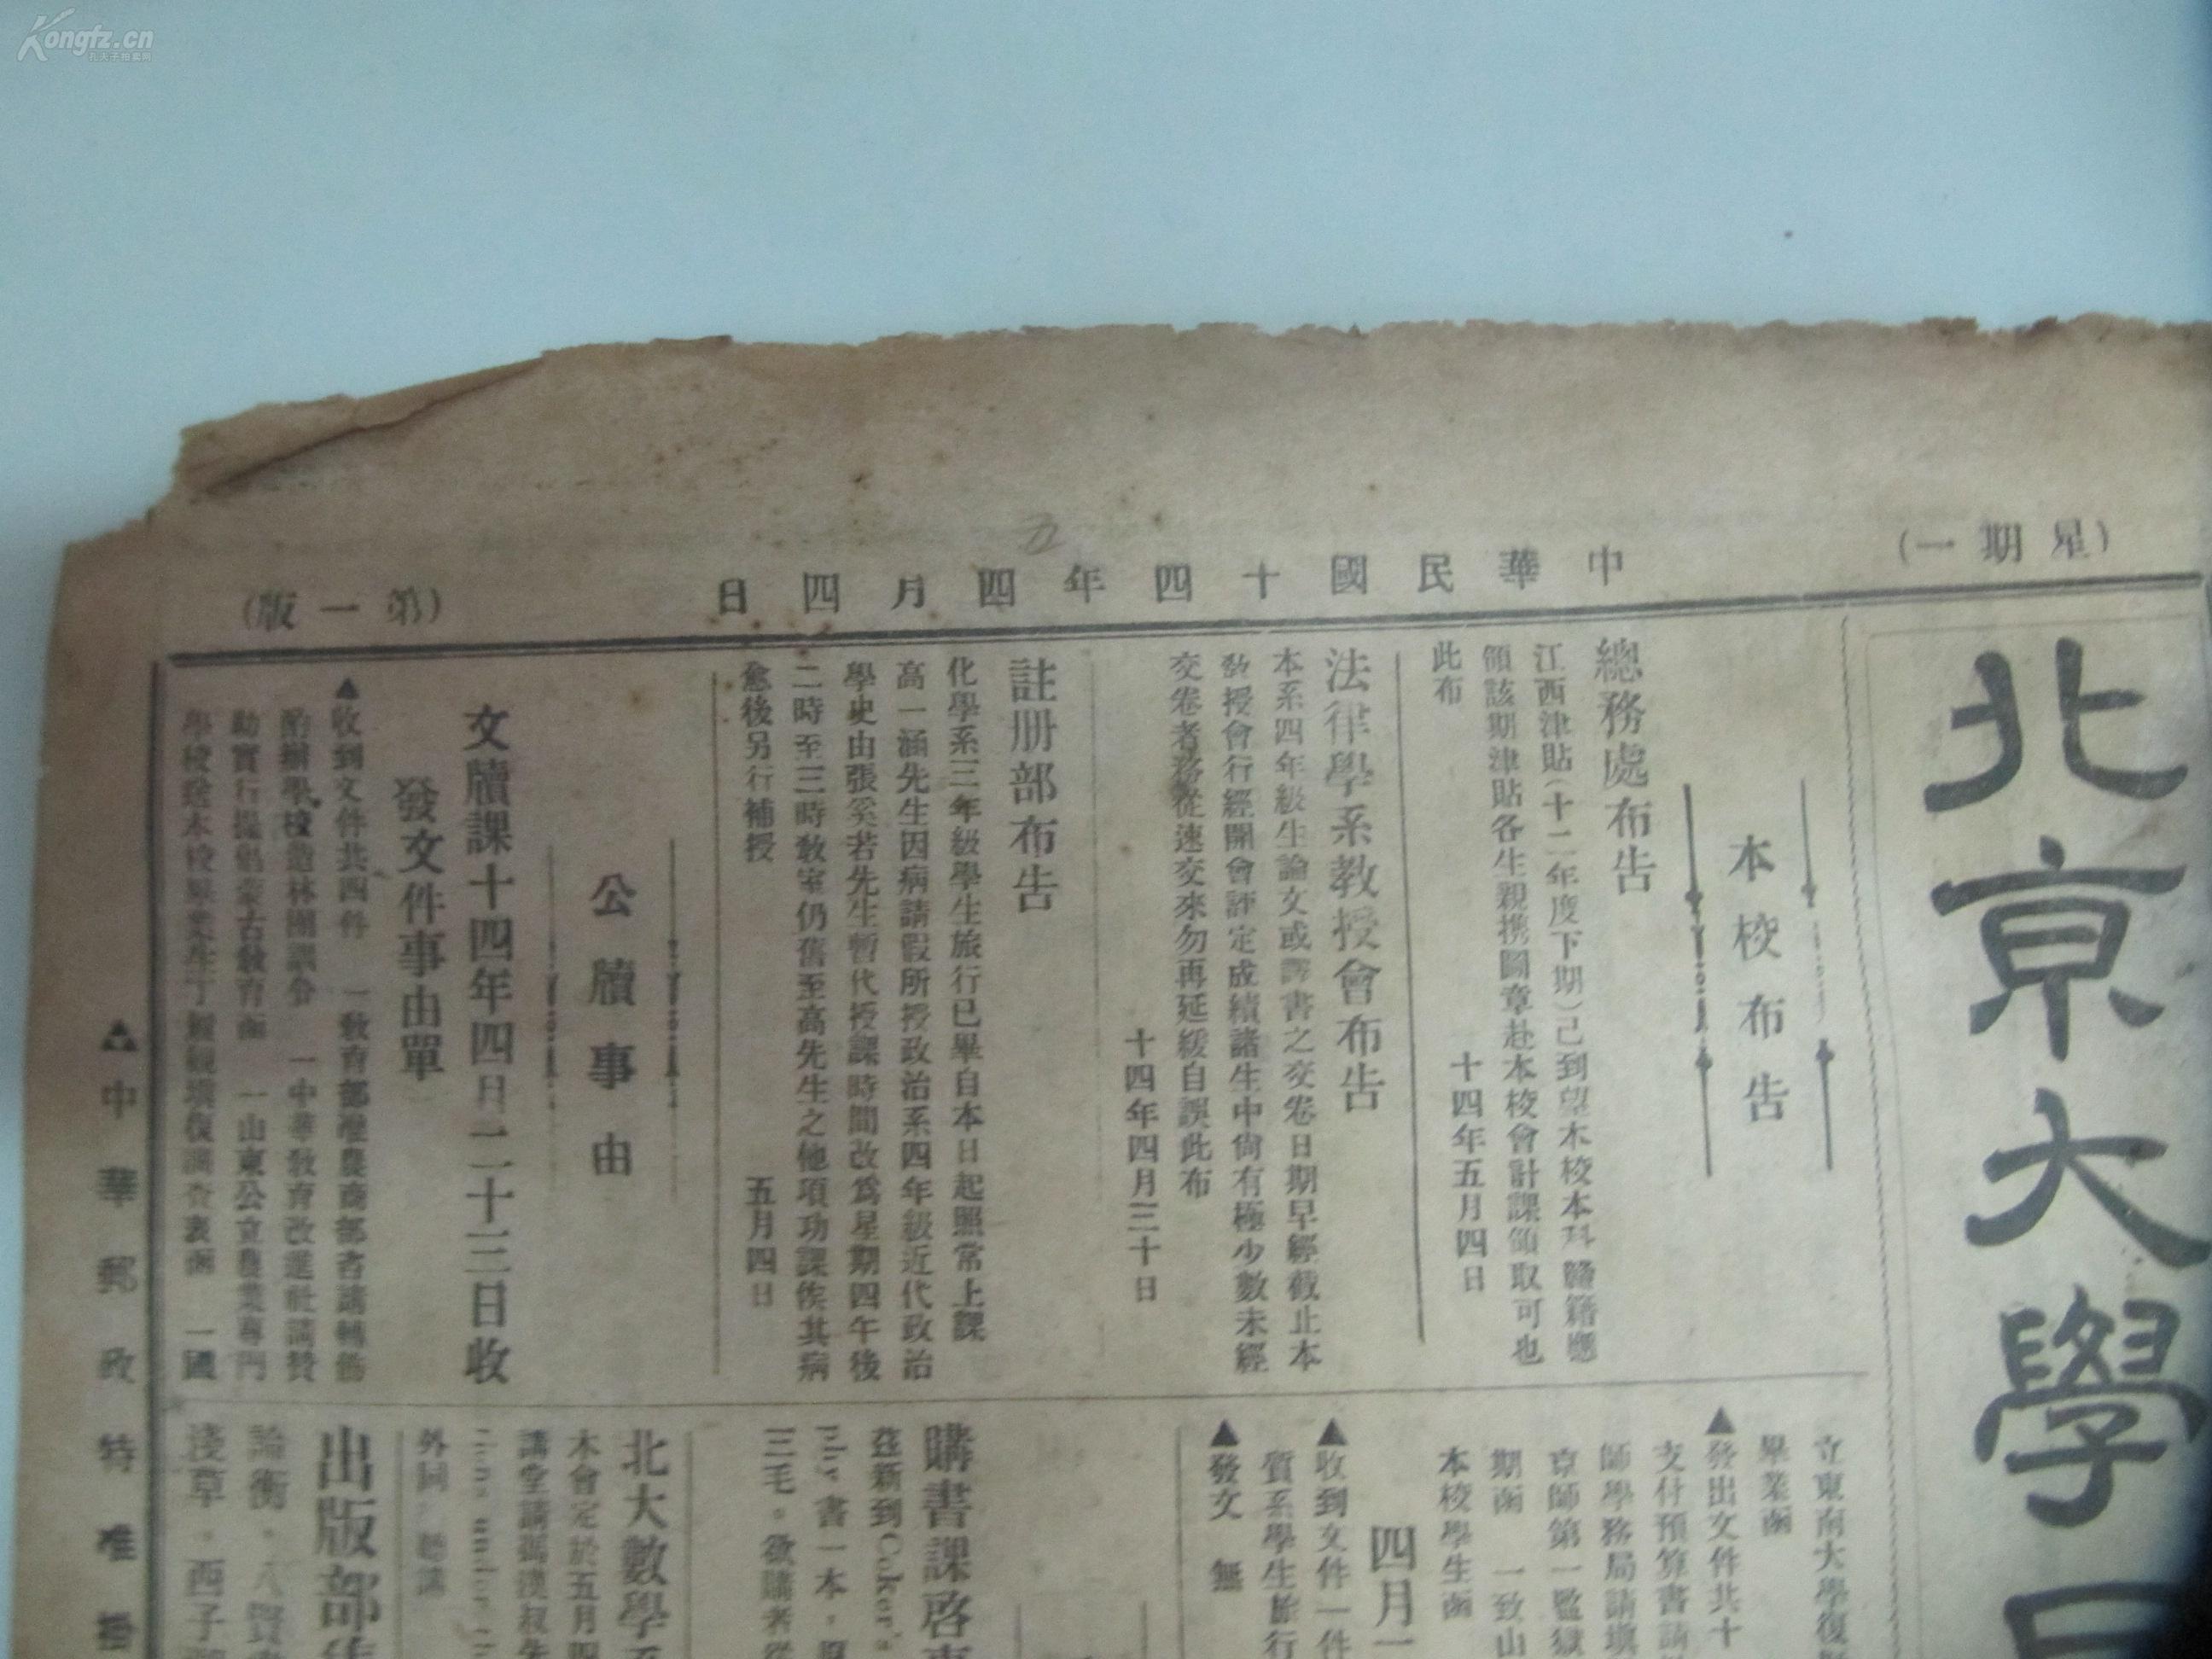 Kongfz.cn
孔夫子拍卖网
(星期一)
中華民國十四年四月四日
(第一版)
五
北京大學日
本校布告
總務處布告
江西津貼(十二年度下期)己到望本校本科贛籍應
領該期津貼各生親携圖章赴本校會計課領取可也
此布
十四年五月四日
法律學系教授會布告
本系四年級生論文或譯書之交卷日期早經截止本
教授會行經開會評定成績諸生中尙有極少數未經
交卷者務從速交來勿再延緩自誤此布
十四年四月三十日
註册部布告
化學系三年級學生旅行已畢自本日起照常上課
高一涵先生因病請假所授政治系四年級近代政治
學史由張奚若先生暫代授課時間改爲星期四午後
二時至三時敎室仍舊至高先生之他項功課俟其病
愈後另行補授
五月四日
公牘事由
文牘課十四年四月二十三日收
發文件事由單
▲收到文件共四件 一敎育部准農商部咨請轉飭
酌辦學校造林團訓令 一中華敎育改進社請贊
助實行提倡蒙古敎育函 一山東公立農業專門
學校送本校畢業生丁履覲塡復調查表函 一國
立東南大學復
畢業函
▲發出文件共十
支付預算書請
師學務局請塡
京師第一監獄
期函 一致山
本校學生函
四月
▲收到文件一件
質系學生旅行
▲發文 無
購書課啓事
茲新到Coker's
phy 書一本，原
三毛。欲購者從
北大數學系
本會定於五月
講堂請馮漢叔先
外回
出版部
論衡。八賢
淺草。西子
▲中華郵政特准掛